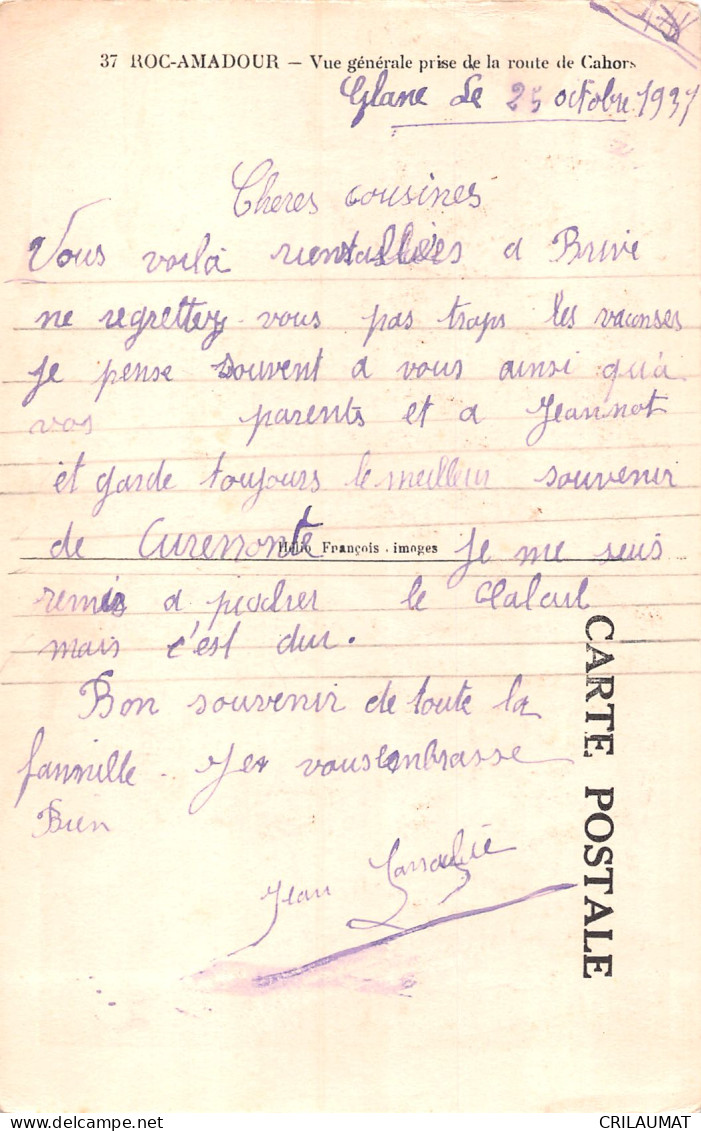 37 ROC-AMADOUR — Vue générale prise de la route de Cahors
Glane Le 25 octobre 1937
Cheres cousines
Vous voilà à Brive
ne regrettez-vous pas trops les vacanses
Je pense souvent a vous ainsi qu'à
vos parents et a Jeannot
et garde toujours le meilleur souvenir
de Curemonte Je me suis
Hélio François . imoges
remis a le
mais c'est dur.
Bon souvenir de toute la
fannille. Je vous enbrasse
Bien
Jean
CARTE POSTALE
CRILAUMAT